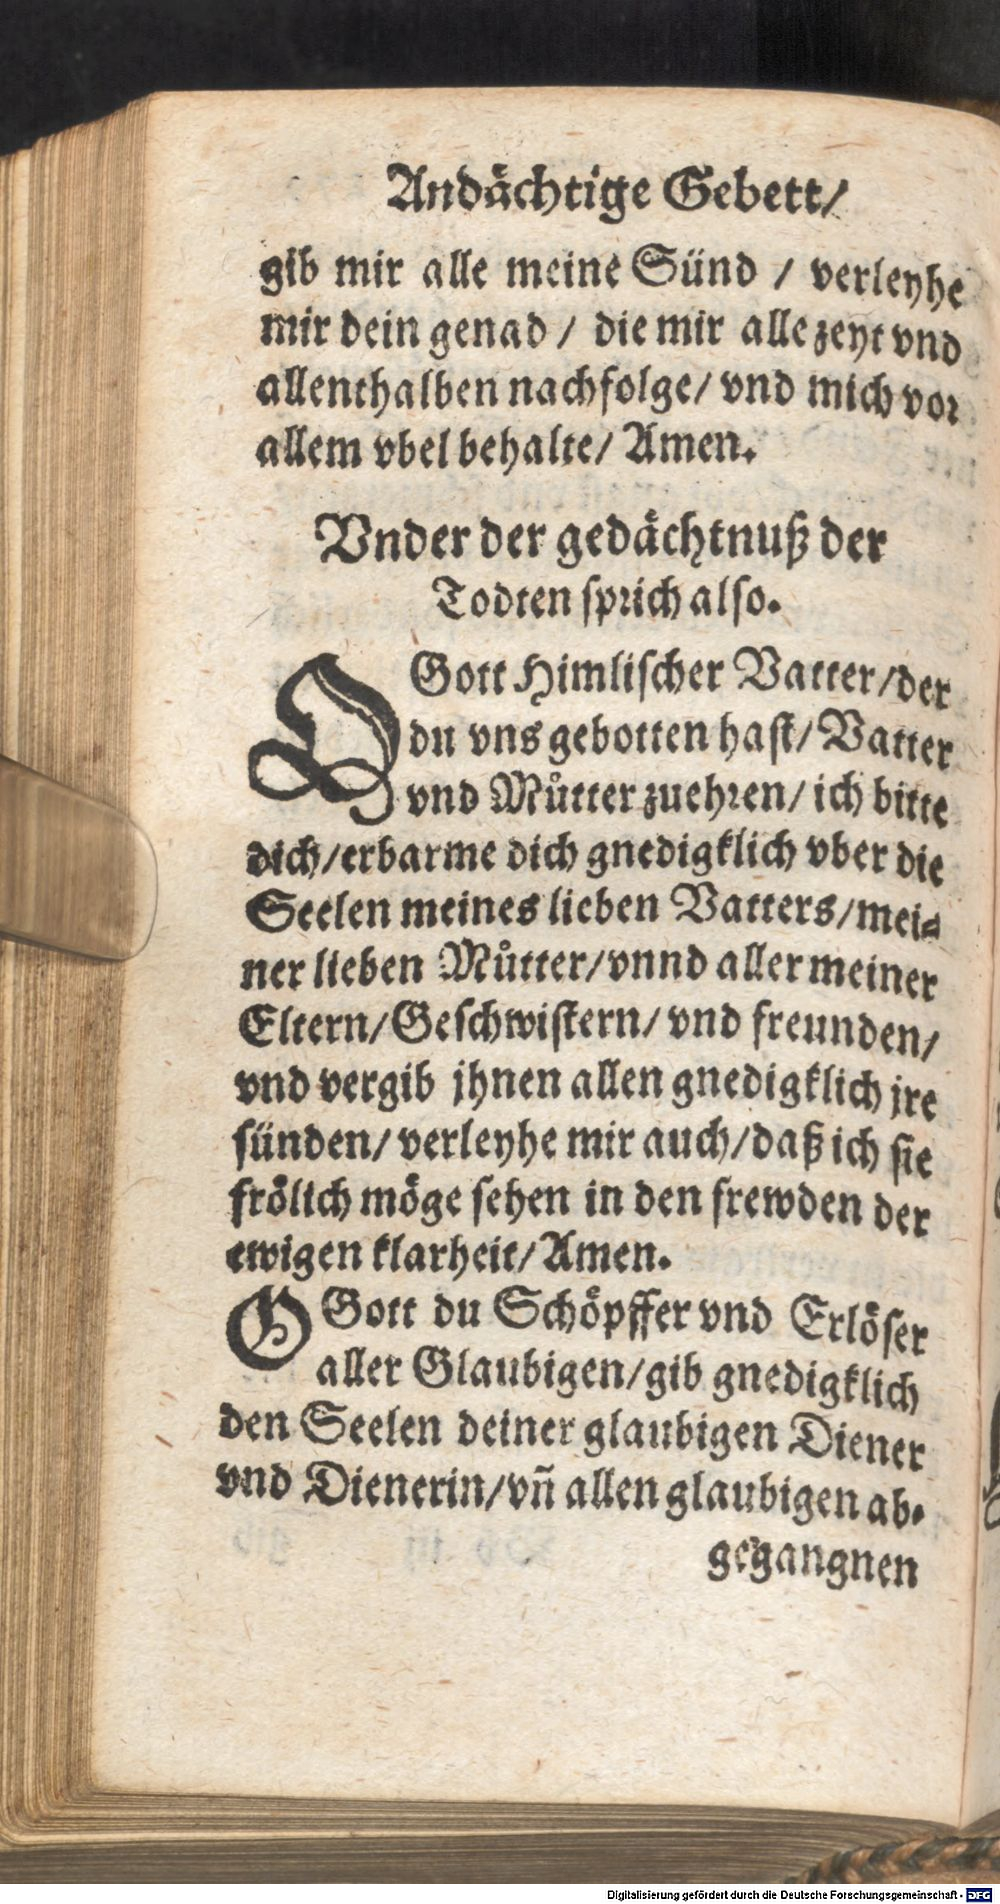 Andächtige Gebett/
gib mir alle meine Sünd / verleyhe
mir dein genad / die mir alle zeyt vnd
allenthalben nachfolge/ vnd mich vor
allem vbel behalte/ Amen.
Vnder der gedächtnuß der
Todten sprich also.
O Gott Himlischer Vatter/der
du vns gebotten hast/ Vatter
vnd Můtter zuehren/ ich bitte
dich/erbarme dich gnedigklich vber die
Seelen meines lieben Vatters/mei=
ner lieben Můtter/vnnd aller meiner
Eltern/Geschwistern/ vnd freunden/
vnd vergib jhnen allen gnedigklich jre
sünden/ verleyhe mir auch/daß ich sie
frölich möge sehen in den frewden der
ewigen klarheit/Amen.
O Gott du Schöpffer vnd Erlöser
aller Glaubigen/gib gnedigklich
den Seelen deiner glaubigen Diener
vnd Dienerin/vñ allen glaubigen ab-
gegangnen
Digitalisierung gefördert durch die Deutsche Forschungsgemeinschaft - DFG